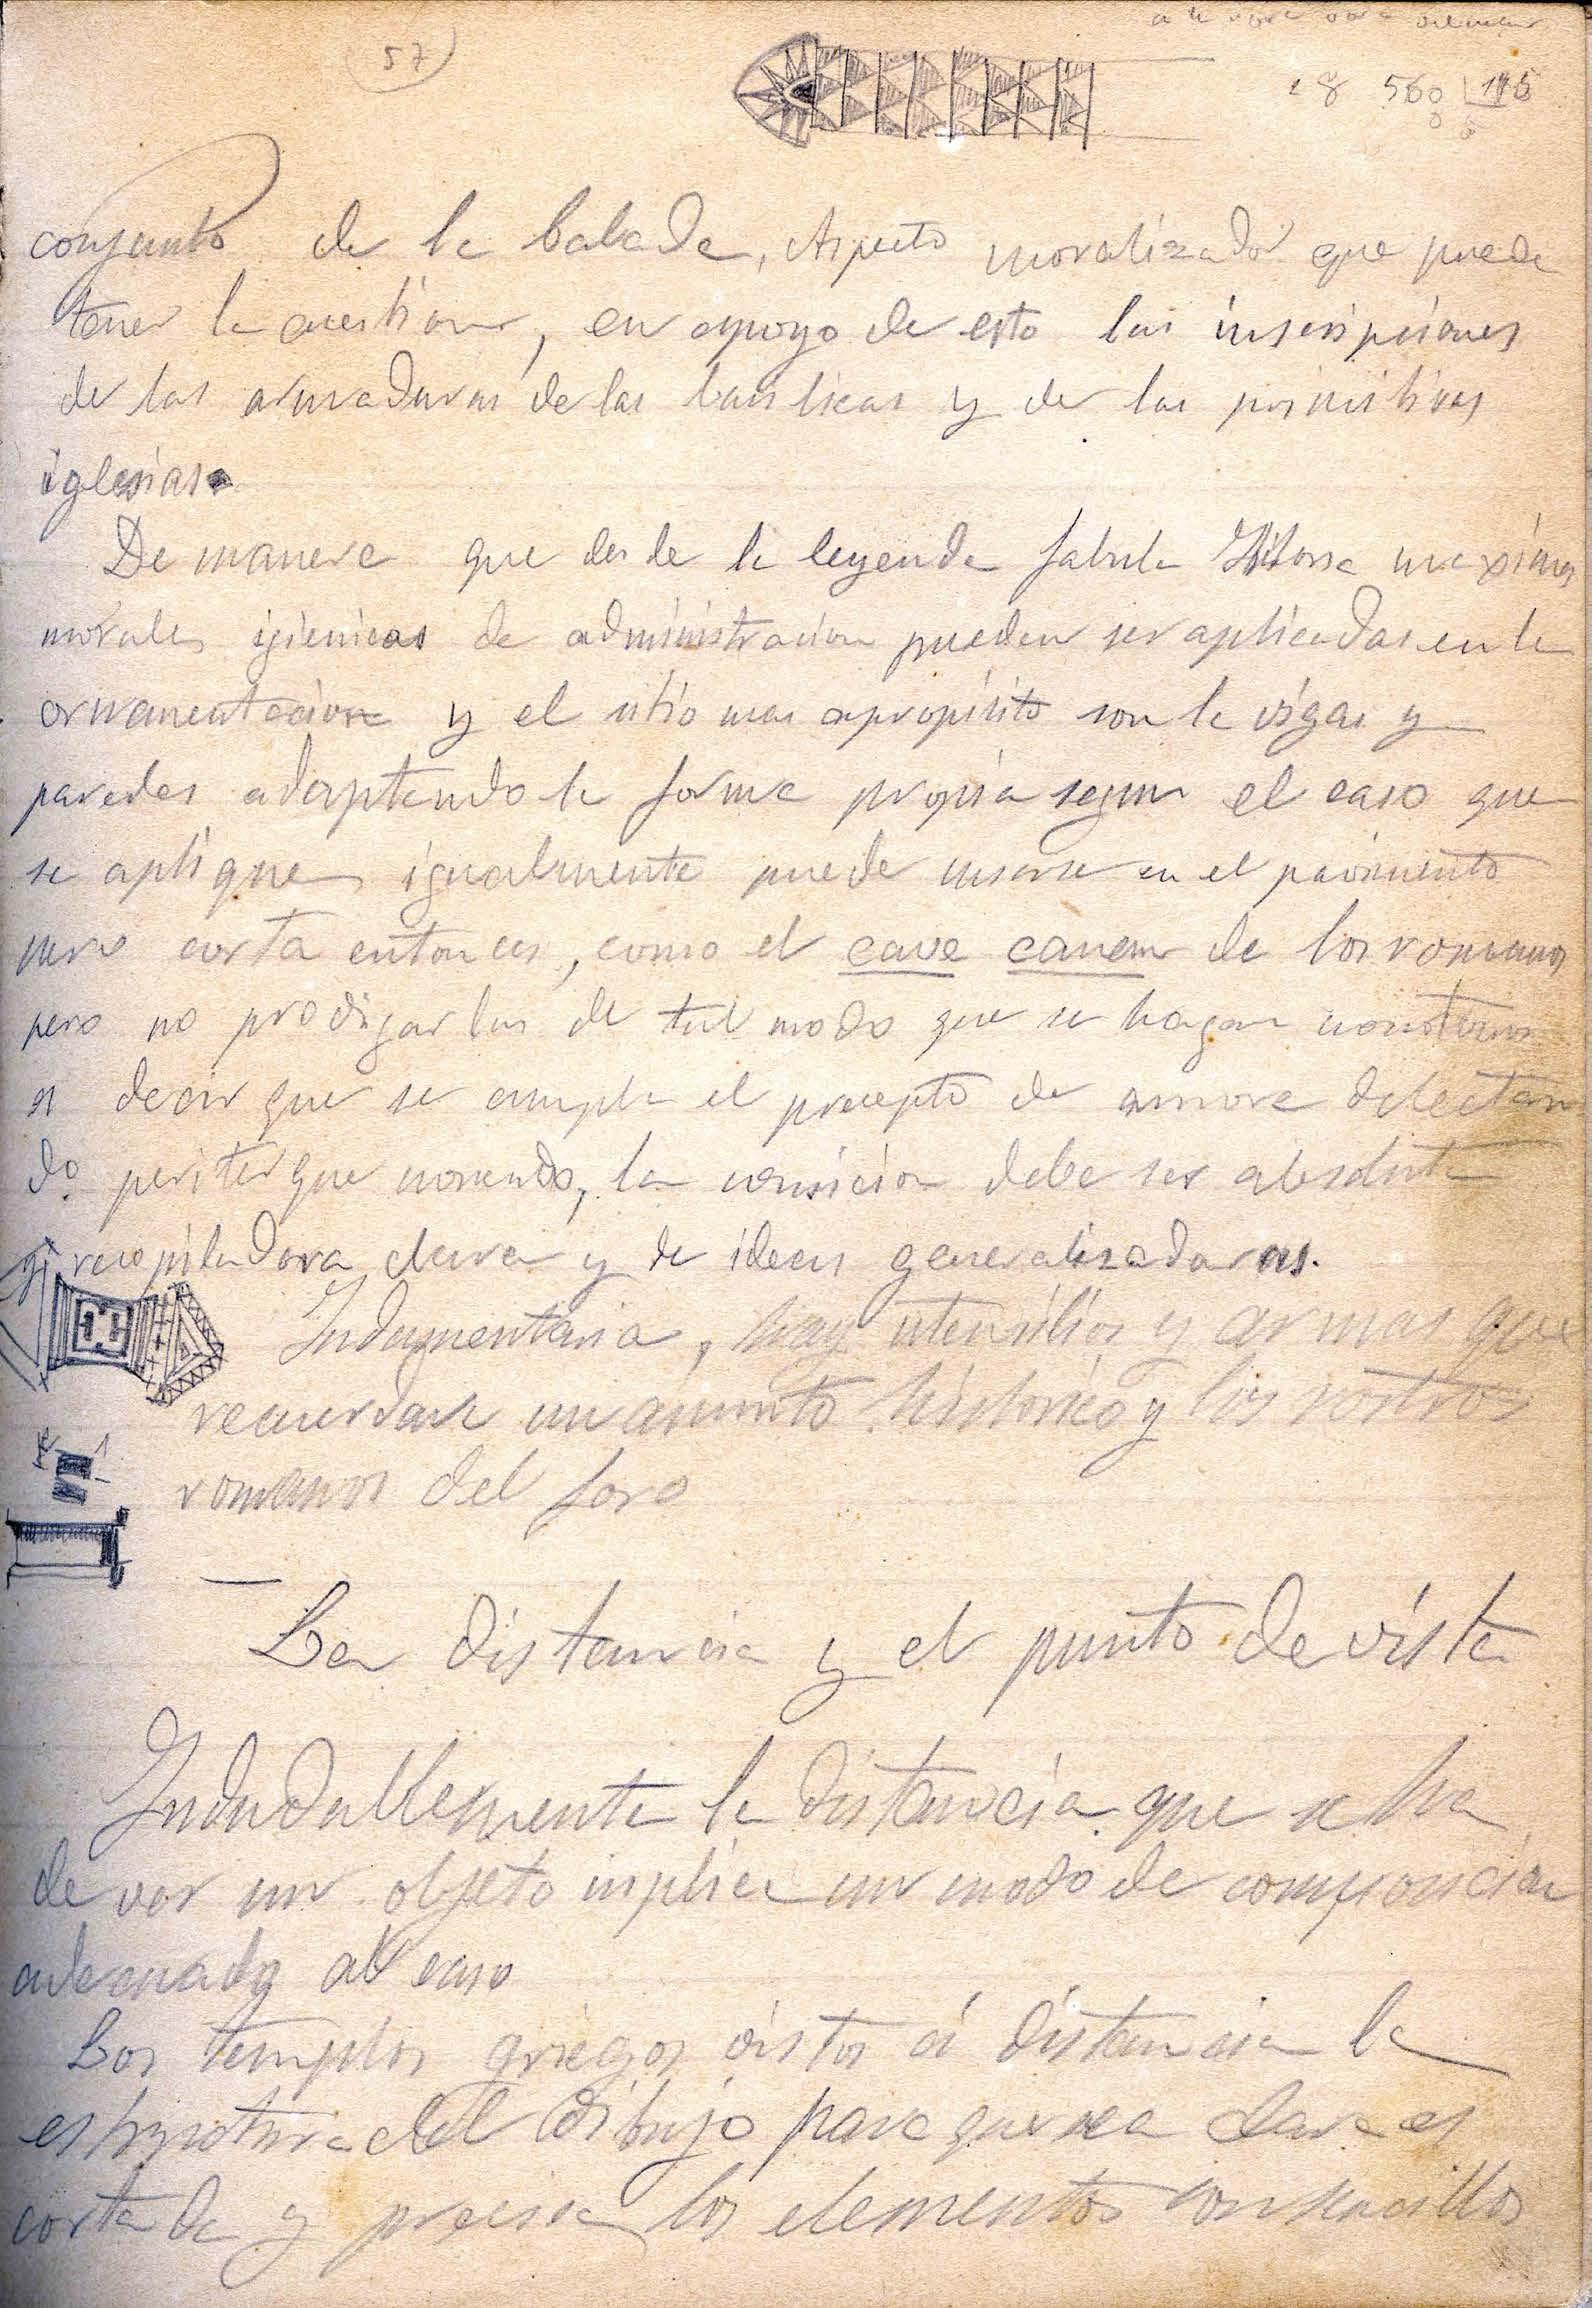 (57)
18 560 115
conjunto de la balada, Aspecto moralizador que puede
tener la cuestion, en apoyo de esto las inscripciones
de las armaduras de las basilicas y de las primitivas
iglesias.
De manera que desde la leyenda fabula Historia maximas
morales igienicas de administracion pueden ser aplicadas en la
ornamentacion y el sitio mas apropósito son la vigas y
paredes adaptando la forma propia segun el caso que
se aplique, igualmente puede usarse en el pavimento
pero corta entonces, como el cave canem de los romanos
pero no prodigarlas de tal modo que se hagan monotonas
es decir que se cumpla el precepto de delectan
do pariterque monendo, la concision debe ser absoluta
y recopiladora clara y de ideas generalizadoras.
Indumentaria, hay utensilios y armas que
recuerdan un asunto historico y los rostros
romanos del foro
La distancia y el punto de vista
Indudablemente la distancia que se ha
de ver un objeto implica un modo de composicion
adecuado al caso
Los templos griegos vistos á distancia la
estructura del dibujo para que sea clara es
cortada y precisa, los elementos son sencillos